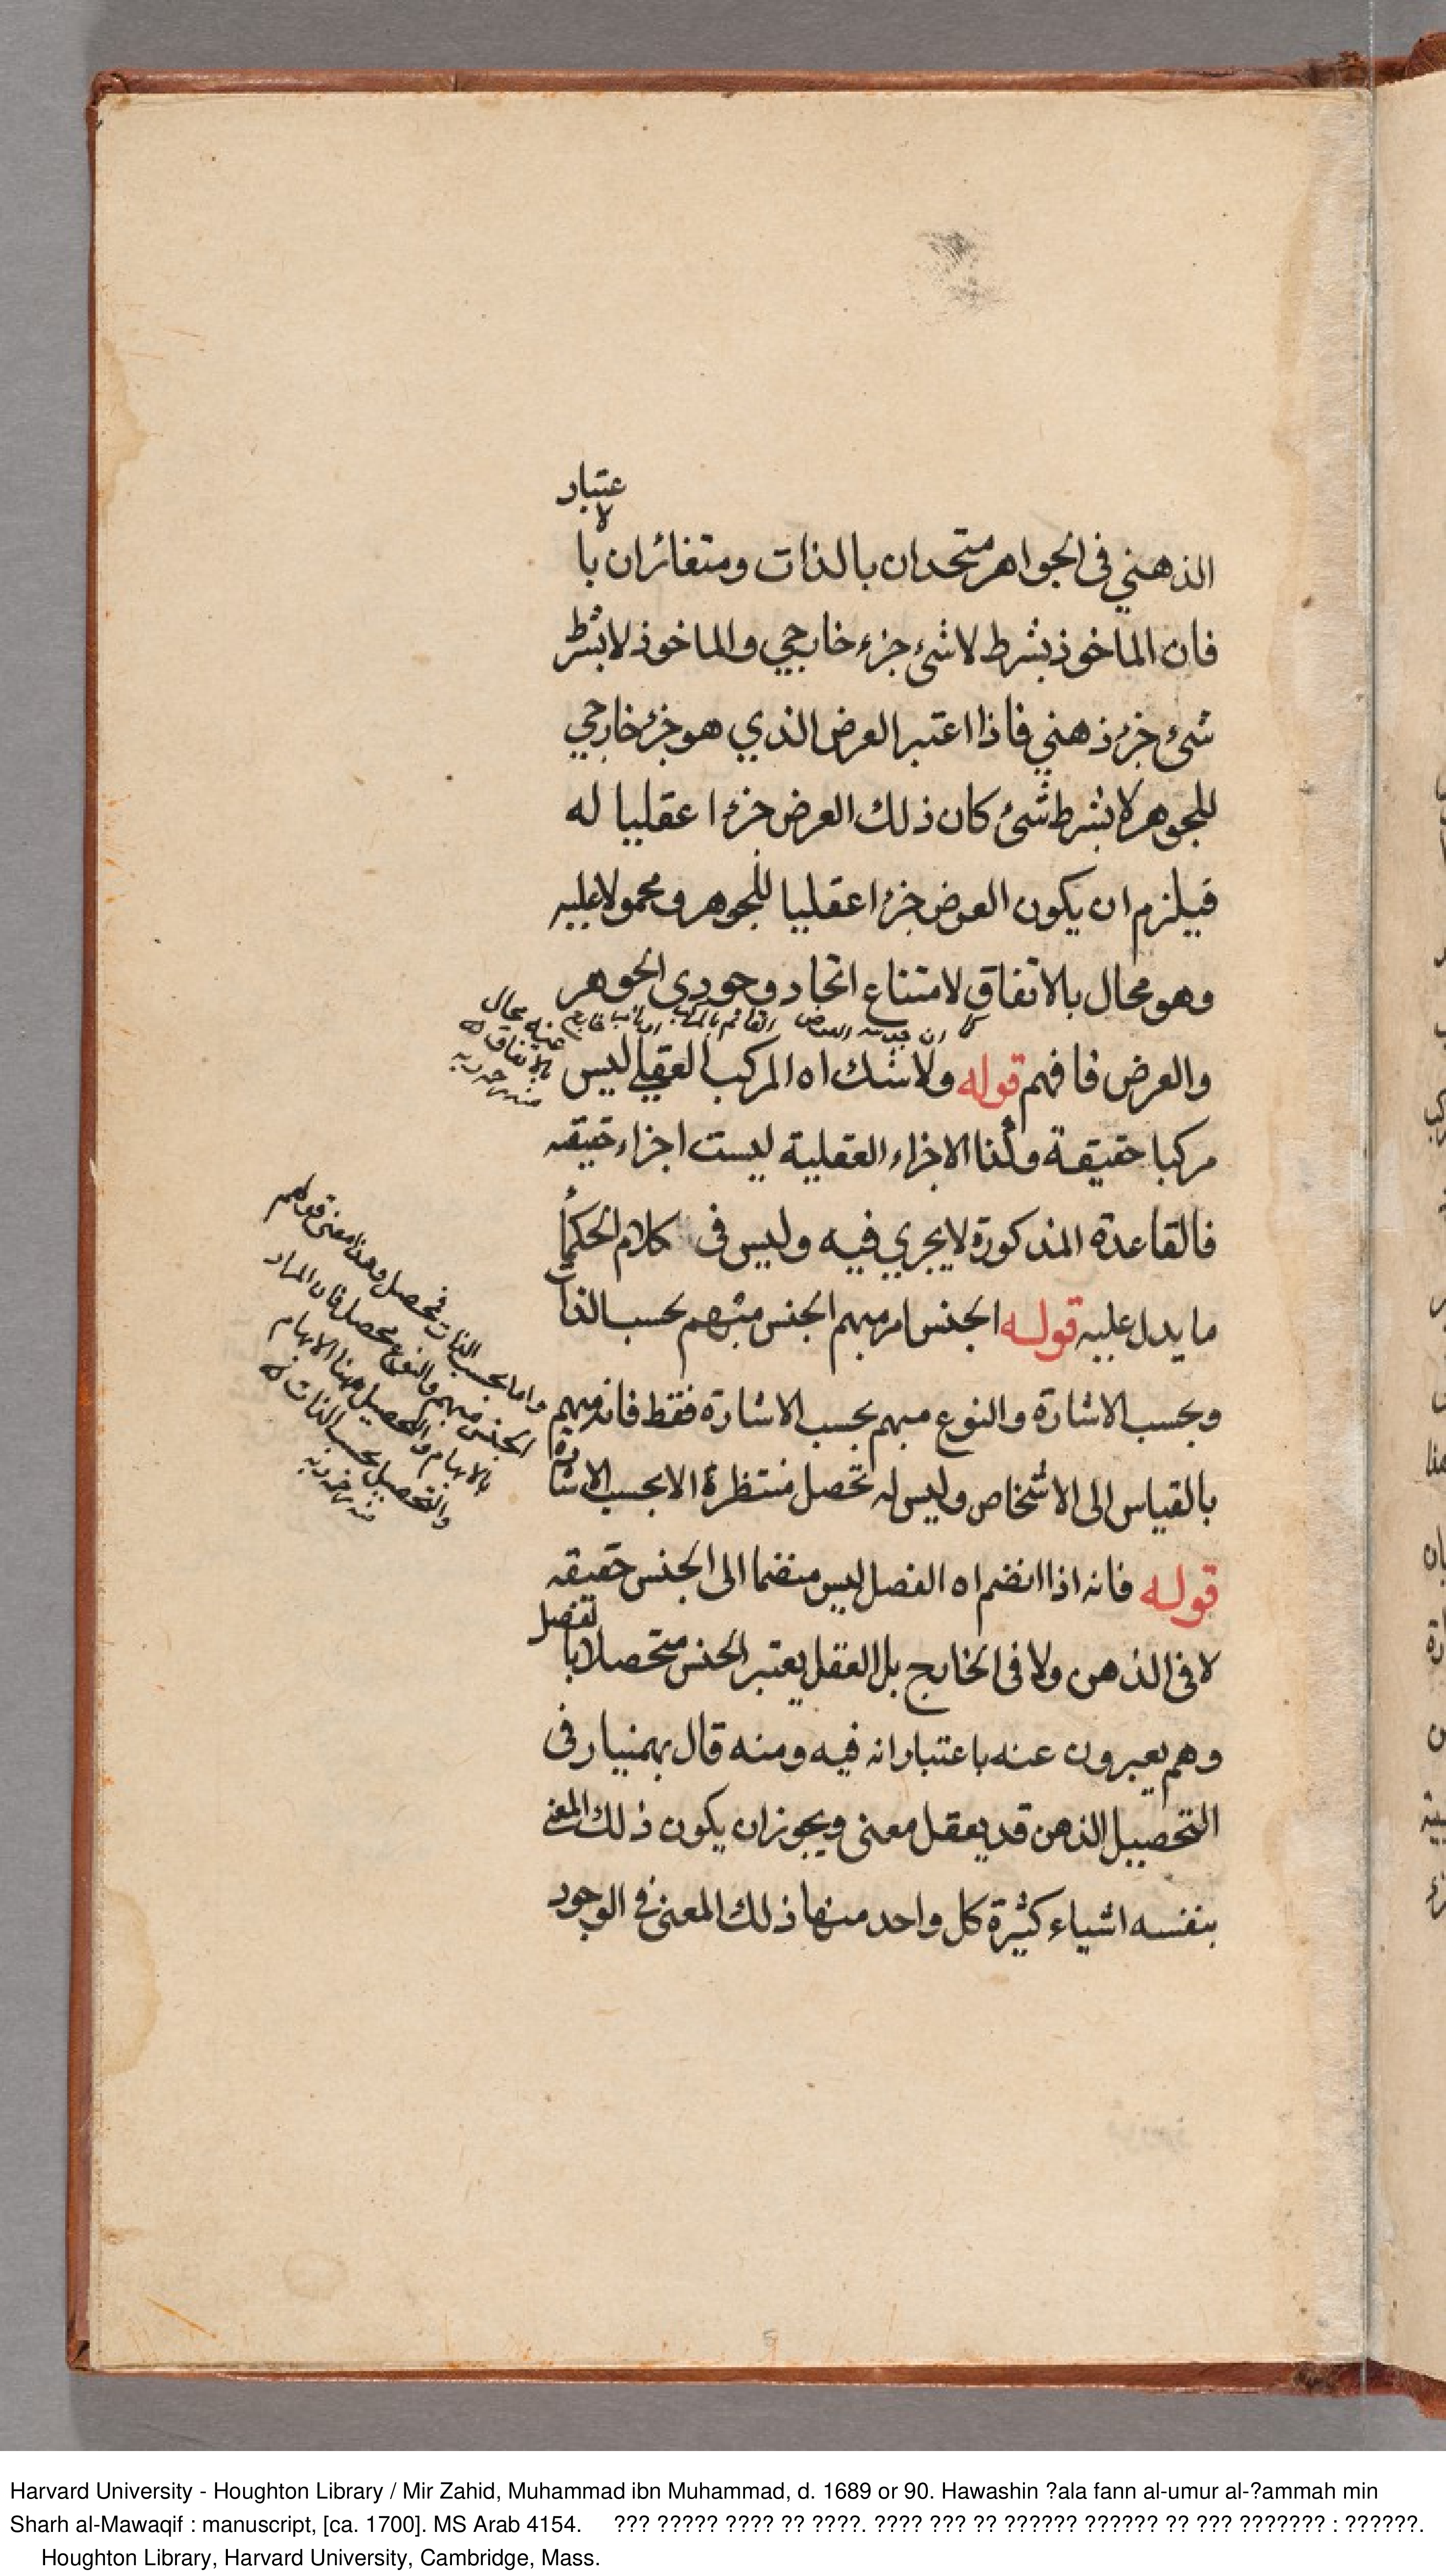 الذهني في الجواهر متحدان بالذات ومتغائران بالاعتبار
فان الماخوذ بشرط لا شئ جزء خارجي والماخوذ لا بشرط
شئ جزء ذهني فاذا اعتبر العرض الذي هو جزء خارجي
للجوهر لا بشرط شئ كان ذلك العرض جزءا عقليا له
فيلزم ان يكون العرض جزءا عقليا للجوهر ومحمولا عليه
وهو محال بالاتفاق لامتناع اتحاد وجودي الجوهر
والعرض فافهم قوله ولا شك اه المركب العقلي ليس
مركبا حقيقة وكذا الاجزاء العقلية ليست اجزاء حقيقه
فالقاعدة المذكورة لا يجري فيه وليس في كلام الحكماء
ما يدل عليه قوله الجنس امر مبهم الجنس مبهم بحسب الذات
وبحسب الاشارة والنوع مبهم بحسب الاشارة فقط فانه مبهم
بالقياس الى الاشخاص وليس له تحصل منتظرة الا بحسب الاشارة
قوله فانه اذا انضم اه الفصل ليس منضما الى الجنس حقيقه
لا في الذهن ولا في الخارج بل العقل يعتبر الجنس متحصلا بالفصل
وهم يعبرون عنه باعتبار انه فيه ومنه قال بهمنيار في
التحصيل الذهن قد يعقل معنى ويجوز ان يكون ذلك المعنى
بنفسه اشياء كثيرة كل واحد منها ذلك المعنى في الوجود
محال
بالاتفاق
واما بحسب الذات فمحصل وهذا معنى قولهم
الجنس مبهم والنوع محصل فان المراد
بالابهام والتحصيل ههنا الابهام
والتحصيل بحسب الذات
Harvard University - Houghton Library / Mir Zahid, Muhammad ibn Muhammad, d. 1689 or 90. Hawashin ?ala fann al-umur al-?ammah min
Sharh al-Mawaqif : manuscript, [ca. 1700]. MS Arab 4154. ??? ????? ???? ?? ????. ???? ??? ?? ?????? ?????? ?? ??? ??????? : ??????.
Houghton Library, Harvard University, Cambridge, Mass.